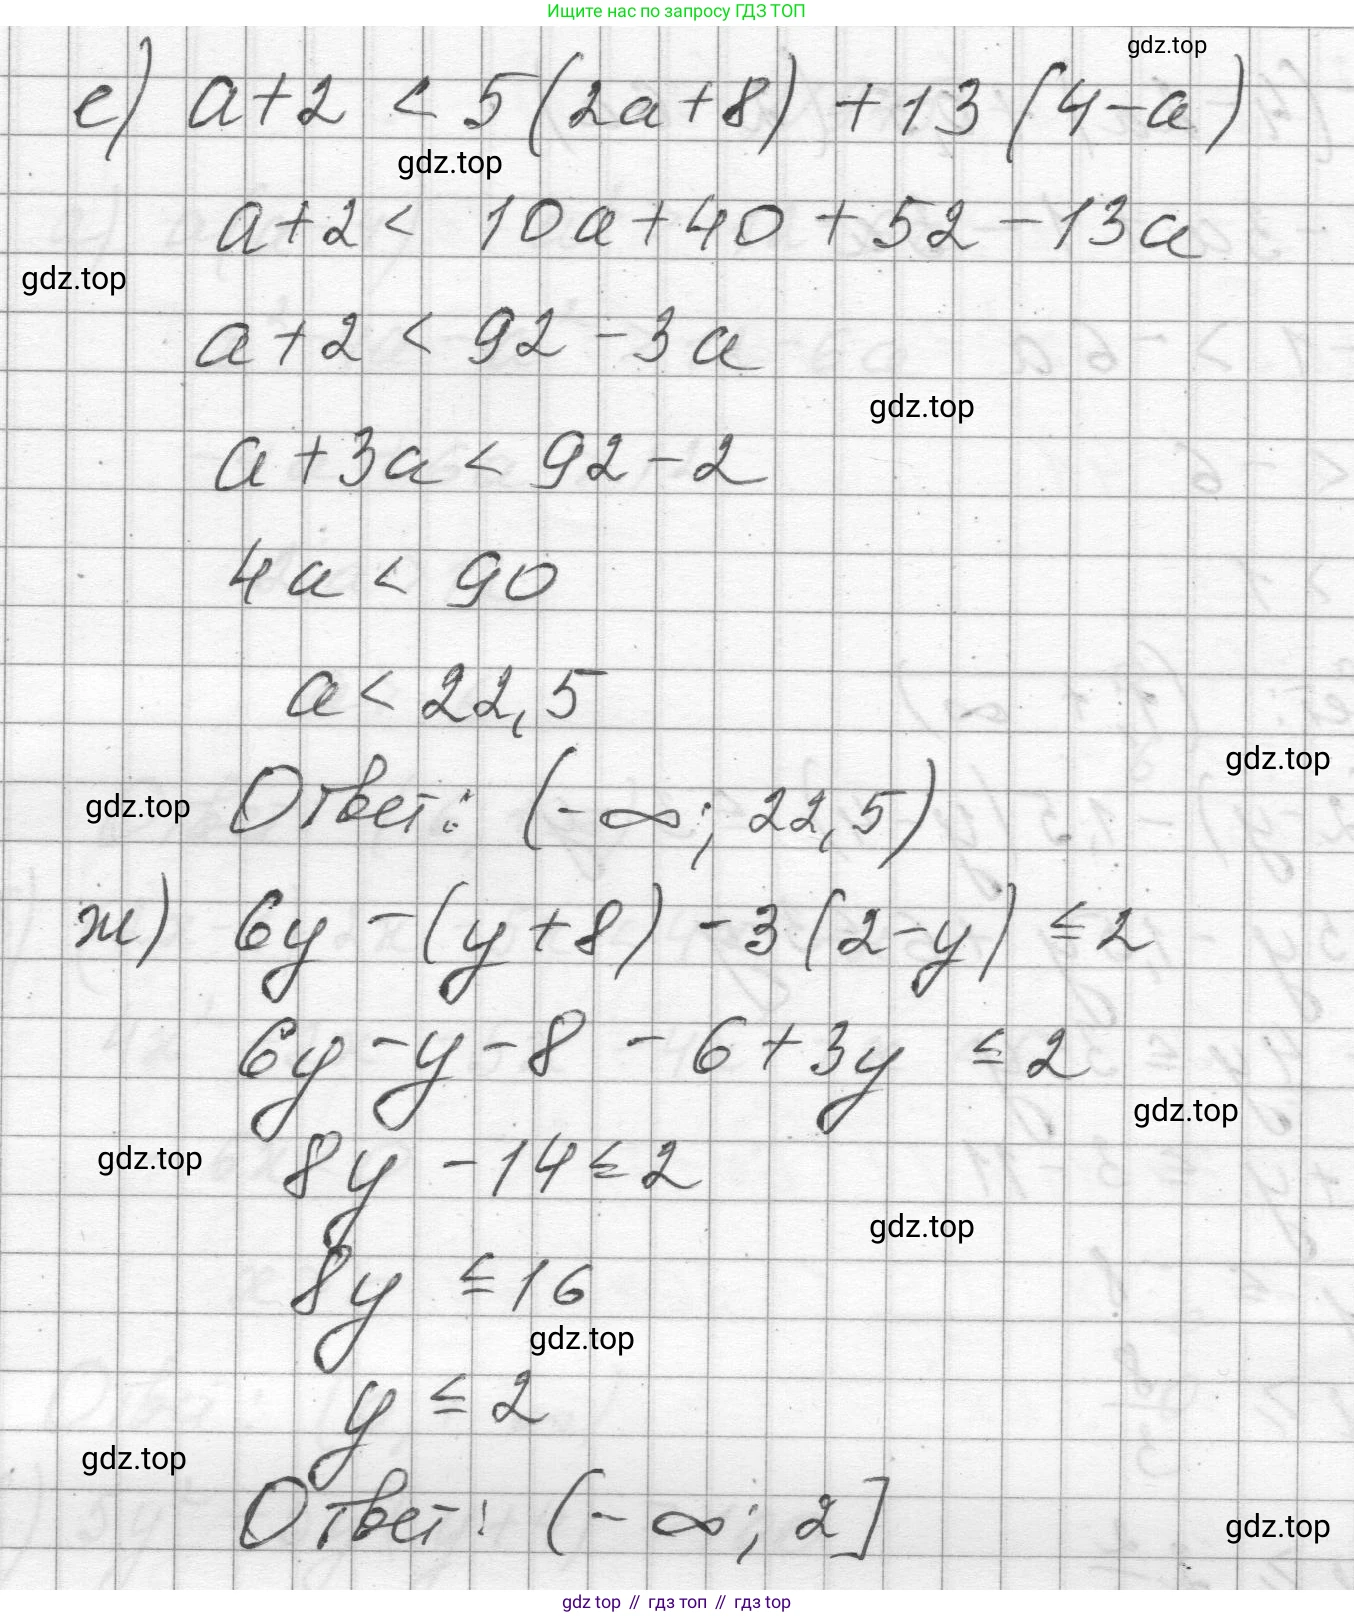 Ищите нас по запросу ГДЗ ТОП
gdz.top
е) a+2 < 5(2a+8) +13(4-a)
gdz.top
a+2 < 10a+40+52-13a
gdz.top
a+2 < 92-3a
gdz.top
a+3a < 92-2
4a < 90
a < 22,5
gdz.top
gdz.top
Ответ: (-∞; 22,5)
ж) 6y-(y+8)-3(2-y) ≤ 2
6y-y-8-6+3y ≤ 2
gdz.top
gdz.top
8y-14 ≤ 2
gdz.top
8y ≤ 16
gdz.top
y ≤ 2
gdz.top
Ответ: (-∞; 2]
gdz.top
gdz top // гдз топ // гдз top